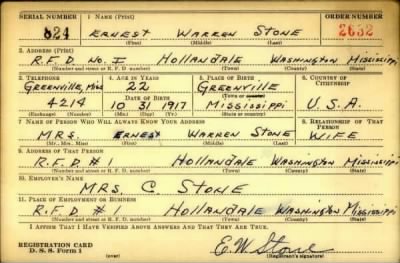 SERIAL NUMBER 1. NAME (Print) ORDER NUMBER
824 ERNEST WARREN STONE 2632
(First) (Middle) (Last)
2. ADDRESS (Print)
R.F.D. No. I HOLLANDALE WASHINGTON MISSISSIPPI
(Number and street or R. F. D. number) (Town) (County) (State)
3. TELEPHONE 4. AGE IN YEARS 5. PLACE OF BIRTH 6. COUNTRY OF CITIZENSHIP
GREENVILLE, MISS 22 GREENVILLE
DATE OF BIRTH (Town or county)
4214 10 31 1917 MISSISSIPPI U.S.A.
(Exchange) (Number) (Mo.) (Day) (Yr.) (State or country)
7. NAME OF PERSON WHO WILL ALWAYS KNOW YOUR ADDRESS 8. RELATIONSHIP OF THAT PERSON
MRS. ERNEST WARREN STONE WIFE
(Mr., Mrs., Miss) (First) (Middle) (Last)
9. ADDRESS OF THAT PERSON
R.F.D. #1 HOLLANDALE WASHINGTON MISSISSIPPI
(Number and street or R. F. D. number) (Town) (County) (State)
10. EMPLOYER'S NAME
MRS. C. STONE
11. PLACE OF EMPLOYMENT OR BUSINESS
R.F.D. #1 HOLLANDALE WASHINGTON MISSISSIPPI
(Number and street or R. F. D. number) (Town) (County) (State)
I AFFIRM THAT I HAVE VERIFIED ABOVE ANSWERS AND THAT THEY ARE TRUE.
REGISTRATION CARD E.W. Stone
D. S. S. Form 1 (over) (Registrant's signature)